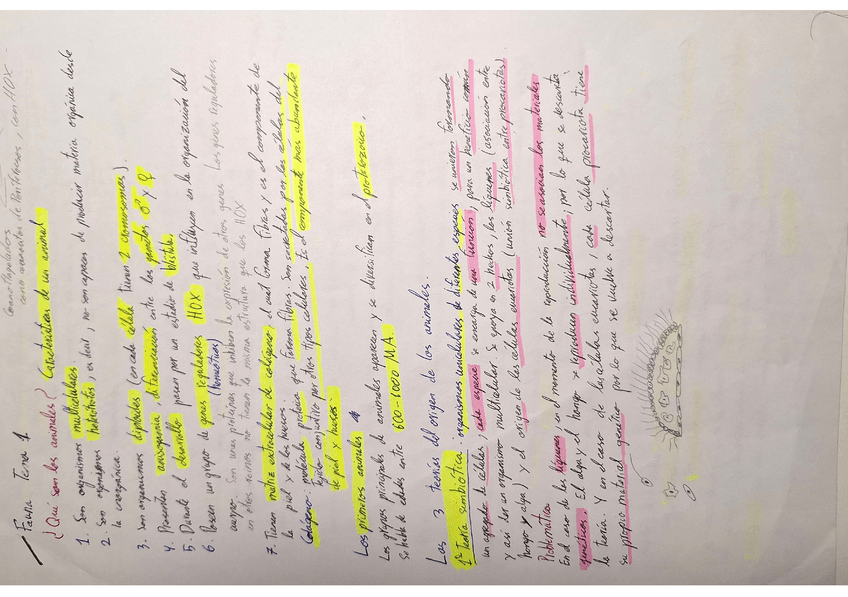 Fauna Tema 1
¿Que son los animales? Características de un animal
como variantes de Poriferos, con HOX.
1. Son organismos multicelulares
2. Son organismos heterótrofos es decir, no son capaces de producir materia orgánica desde
la inorgánica.
3. Son organismos diploides (en cada célula tienen 2 cromosomas).
4. Presentan anisogamia, diferenciación entre los gametos ♂ y ♀
5. Durante el desarrollo pasan por un estadio de blástula.
6. Poseen un grupo de genes reguladores HOX que influyen en la organización del
(homeóticos)
cuerpo. Son unas proteinas que inhiben la expresión de otros genes. Los genes reguladores
en otros reinos no tienen la misma estructura que los HOX
7. Tienen matriz extracelular de colágeno, el cual forma fibras y es el componente de
la piel y de los huesos.
Colágeno: molécula proteica que forma fibras. Son secretadas por las células del
tejido conjuntivo y otros tipos celulares. Es el componente más abundante
de piel y huesos.
Los primeros animales
Los grupos principales de animales aparecen y se diversifican en el proterozoico.
Se habla de edades entre 600-1000 M.A
Las 3 teorías del origen de los animales.
1ª Teoría simbiótica: organismos unicelulares de diferentes especies se unieron formando
un agregado de células, cada especie se encarga de una función, para un beneficio común
y así ser un organismo multicelular. Se apoya en 2 hechos, los líquenes (asociación entre
hongo y alga) y el origen de las células eucariotas (unión simbiótica entre procariotas).
Problemática
En el caso de los líquenes, en el momento de la reproducción no se asocian los materiales
genéticos. El alga y el hongo se reproducen individualmente, por lo que se descarta
la teoría. Y en el caso de las células eucariotas, cada célula procariota tiene
su propio material genético por lo que se vuelve a descartar.